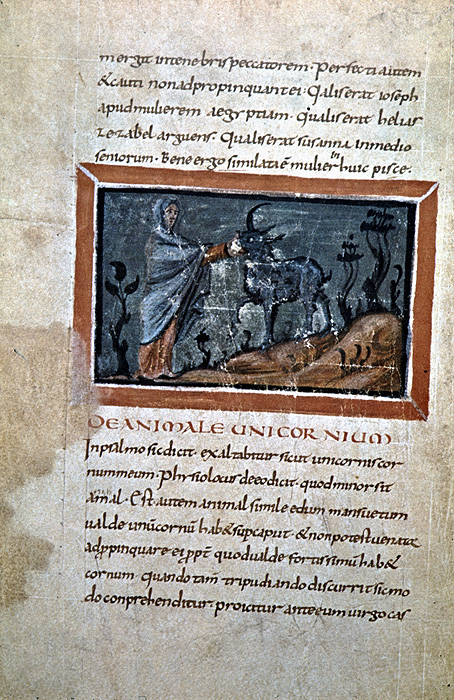 mergit intenebris peccatorem · Perfecti autem
& cauti non adpropinquant ei · Qaliserat ioseph
apud mulierem aegyptiam · Qualiserat helias
iezabel arguens · Qualiserat susanna in medio
seniorum · Bene ergo similata ē mulier huic pisce ·
DE ANIMALE UNICORNIUM
In psalmo sic dicit · exaltabitur sicut unicornis cor
nummeum · Phisiologus deeo dicit · quod minor sit
animal · Est autem animal simile edum mansuetum
ualde unū cornū hab& supcaput · & non potest uenatc
adppinquare ei ppt quod ualde fortissimū hab&
cornum · quando tam tripudiando discurrit sic mo
do conprehenditur · proicitur ante eum uirgo cas